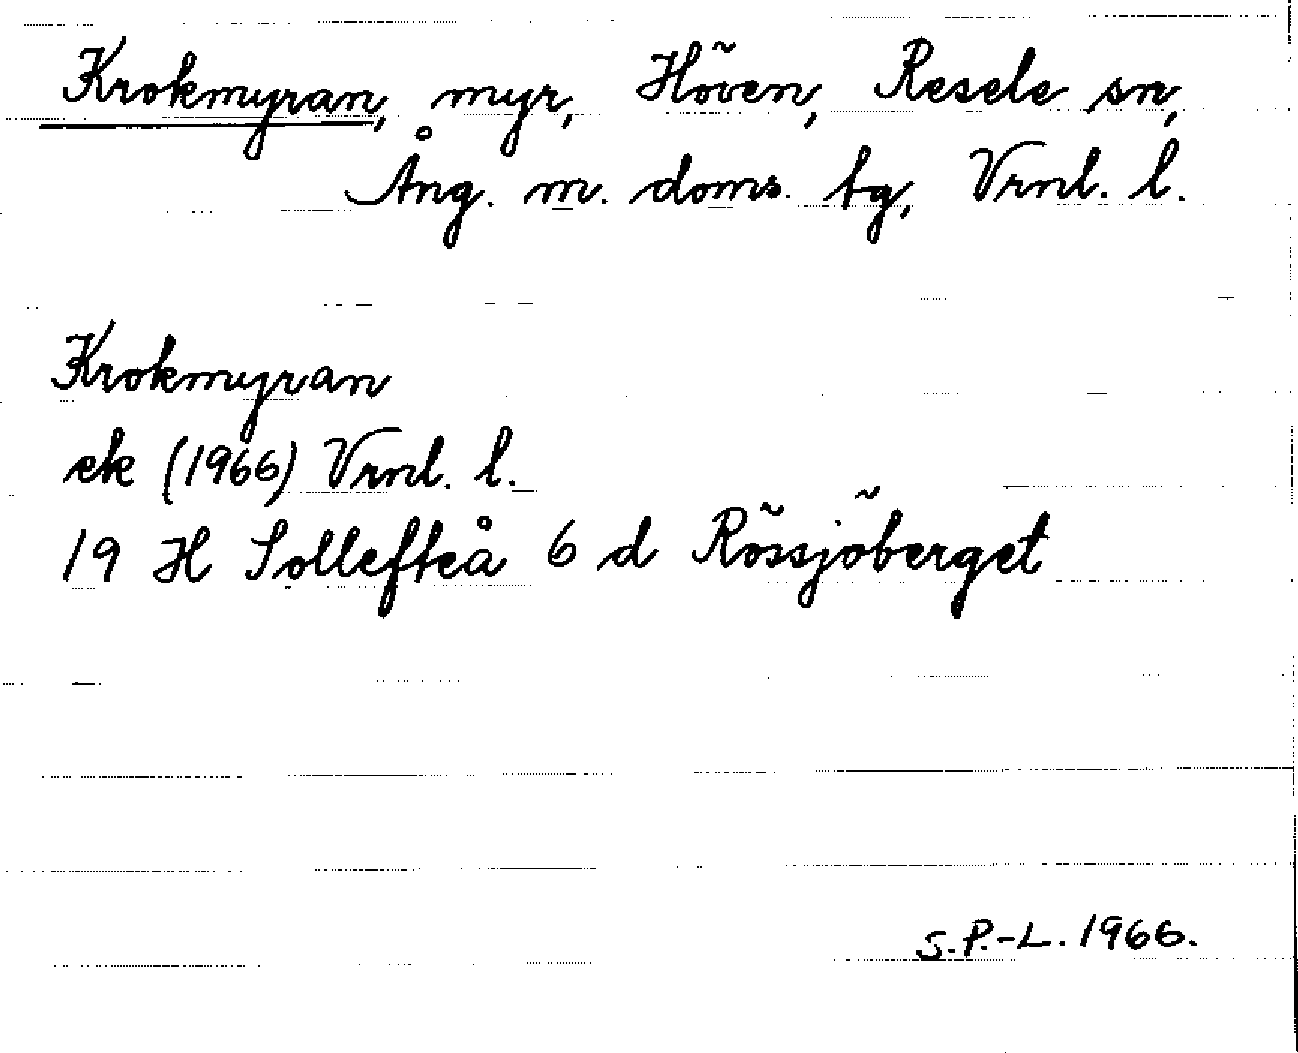 Krokmyran, myr, Höven, Resele sn,
Ång. m. doms. tg, Vrnl. l.
Krokmyran
ek (1966) Vrnl. l.
19 H Sollefteå 6 d Rössjöberget
S.P.-L. 1966.